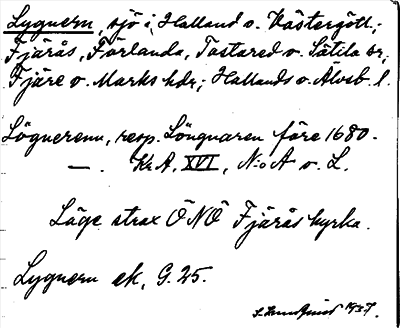 Lygnern, sjö i Halland o. Västergötl.;
Fjärås, Förlanda, Tostared o. Sätila sr,
Fjäre o. Marks hdr; Hallands o. Älvsb. l.
Lögnerenn, resp. Löngnaren före 1680.
— . Kr A, XVI, N:o A o. L.
Läge strax ÖNÖ Fjärås kyrka.
Lygnern ek, G. 25.
1937.